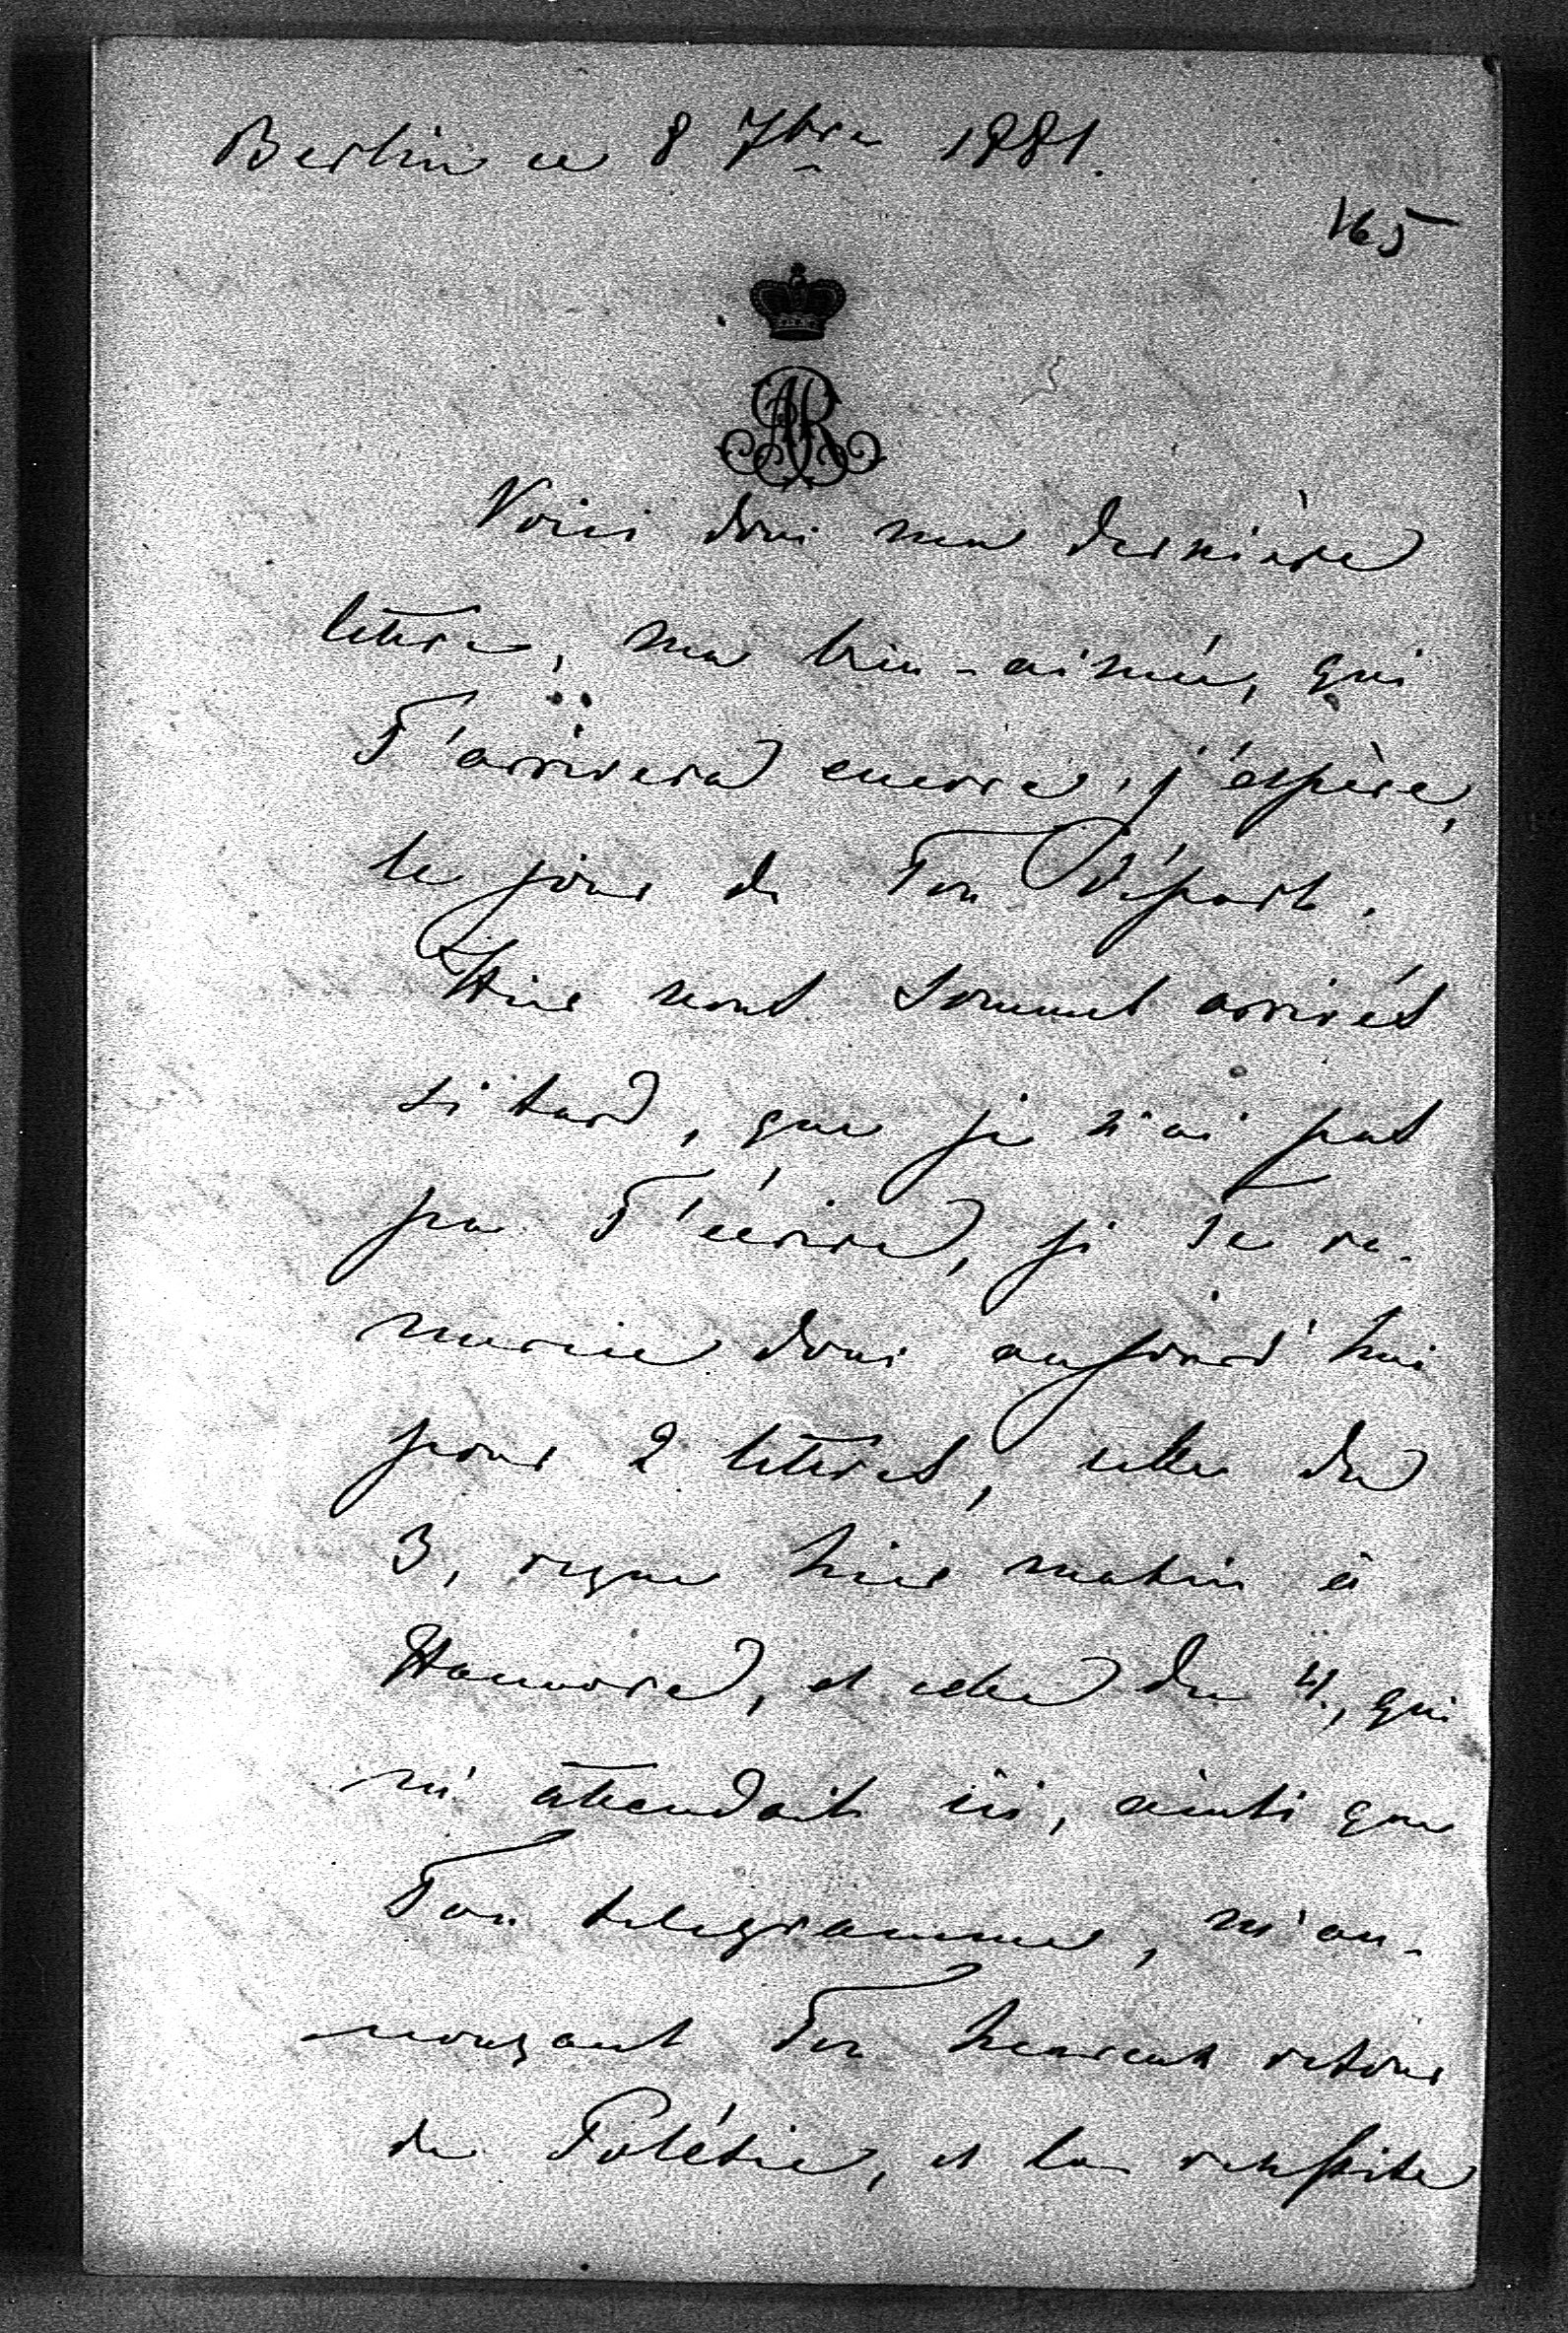 Berlin ce 8 7bre 1881.
165
AR
Voici donc ma dernière
lettre, ma bien-aimée, qui
T'arrivera encore, j'espère,
le jour de Ton départ.
Hier nous sommes arrivés
si tard, que je n'ai pas
pu T'écrire, je Te re-
mercie donc aujourd'hui
pour 2 lettres, celle du
3, reçue hier matin à
Hanovre, et celle du 4, qui
m'attendait ici, ainsi que
Ton telegramme, m'an-
nonçant Ton heureux retour
de Polésie, et la reussite